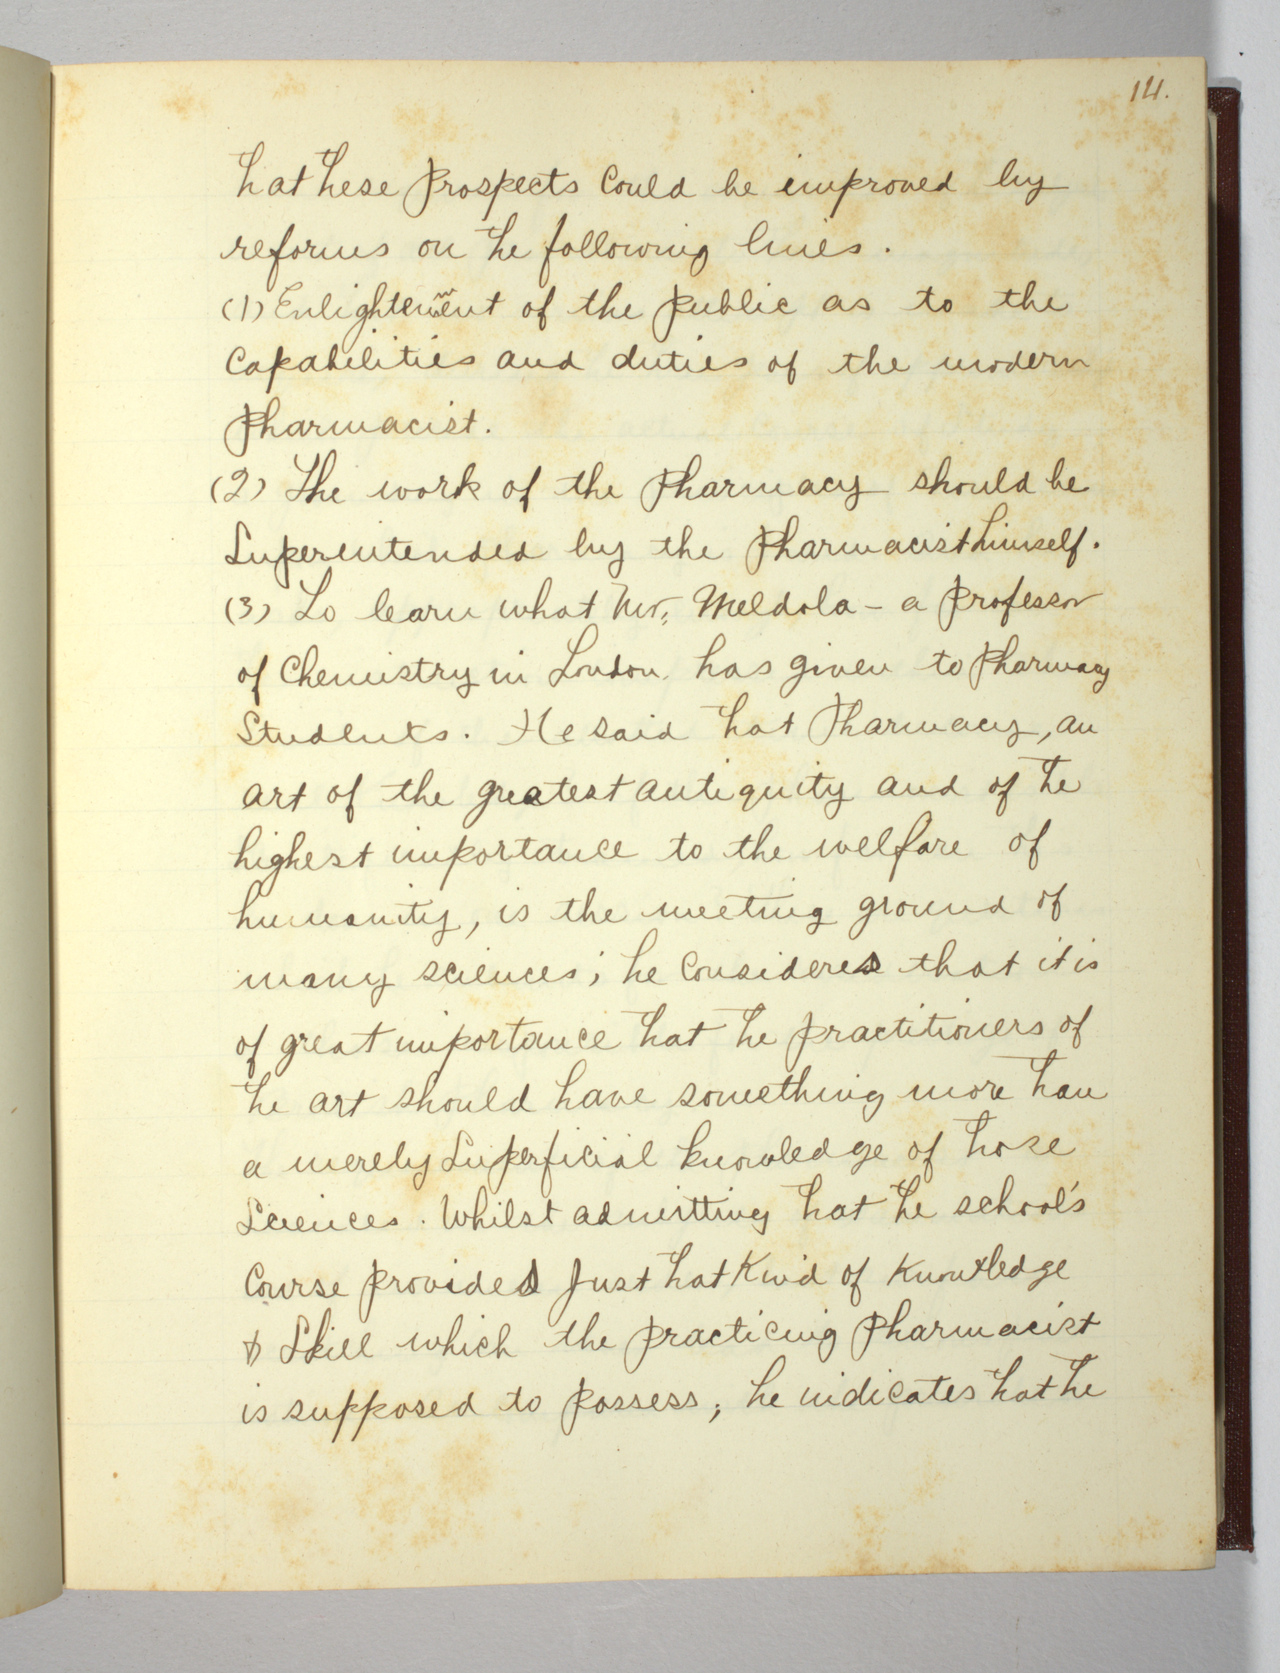 14.
that these prospects could be improved by
reforms on the following lines.
(1) Enlightenment of the public as to the
Capabilities and duties of the modern
Pharmacist.
(2) The work of the Pharmacy should be
Superintended by the Pharmacist himself.
(3) To learn what Mr. Meldola - a Professor
of Chemistry in London has given to Pharmacy
Students. He said that Pharmacy, an
art of the greatest antiquity and of the
highest importance to the welfare of
humanity, is the meeting ground of
many sciences; he Consideres that it is
of great importance that the practitioners of
the art should have something more than
a merely Superficial knowledge of those
Sciences. Whilst admitting that the school's
Course provides just that Kind of Knowledge
& Skill which the practicing Pharmacist
is supposed to possess; he indicates that the